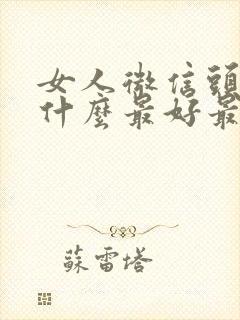 女人微信頭
什麼最好最
蘇雷塔